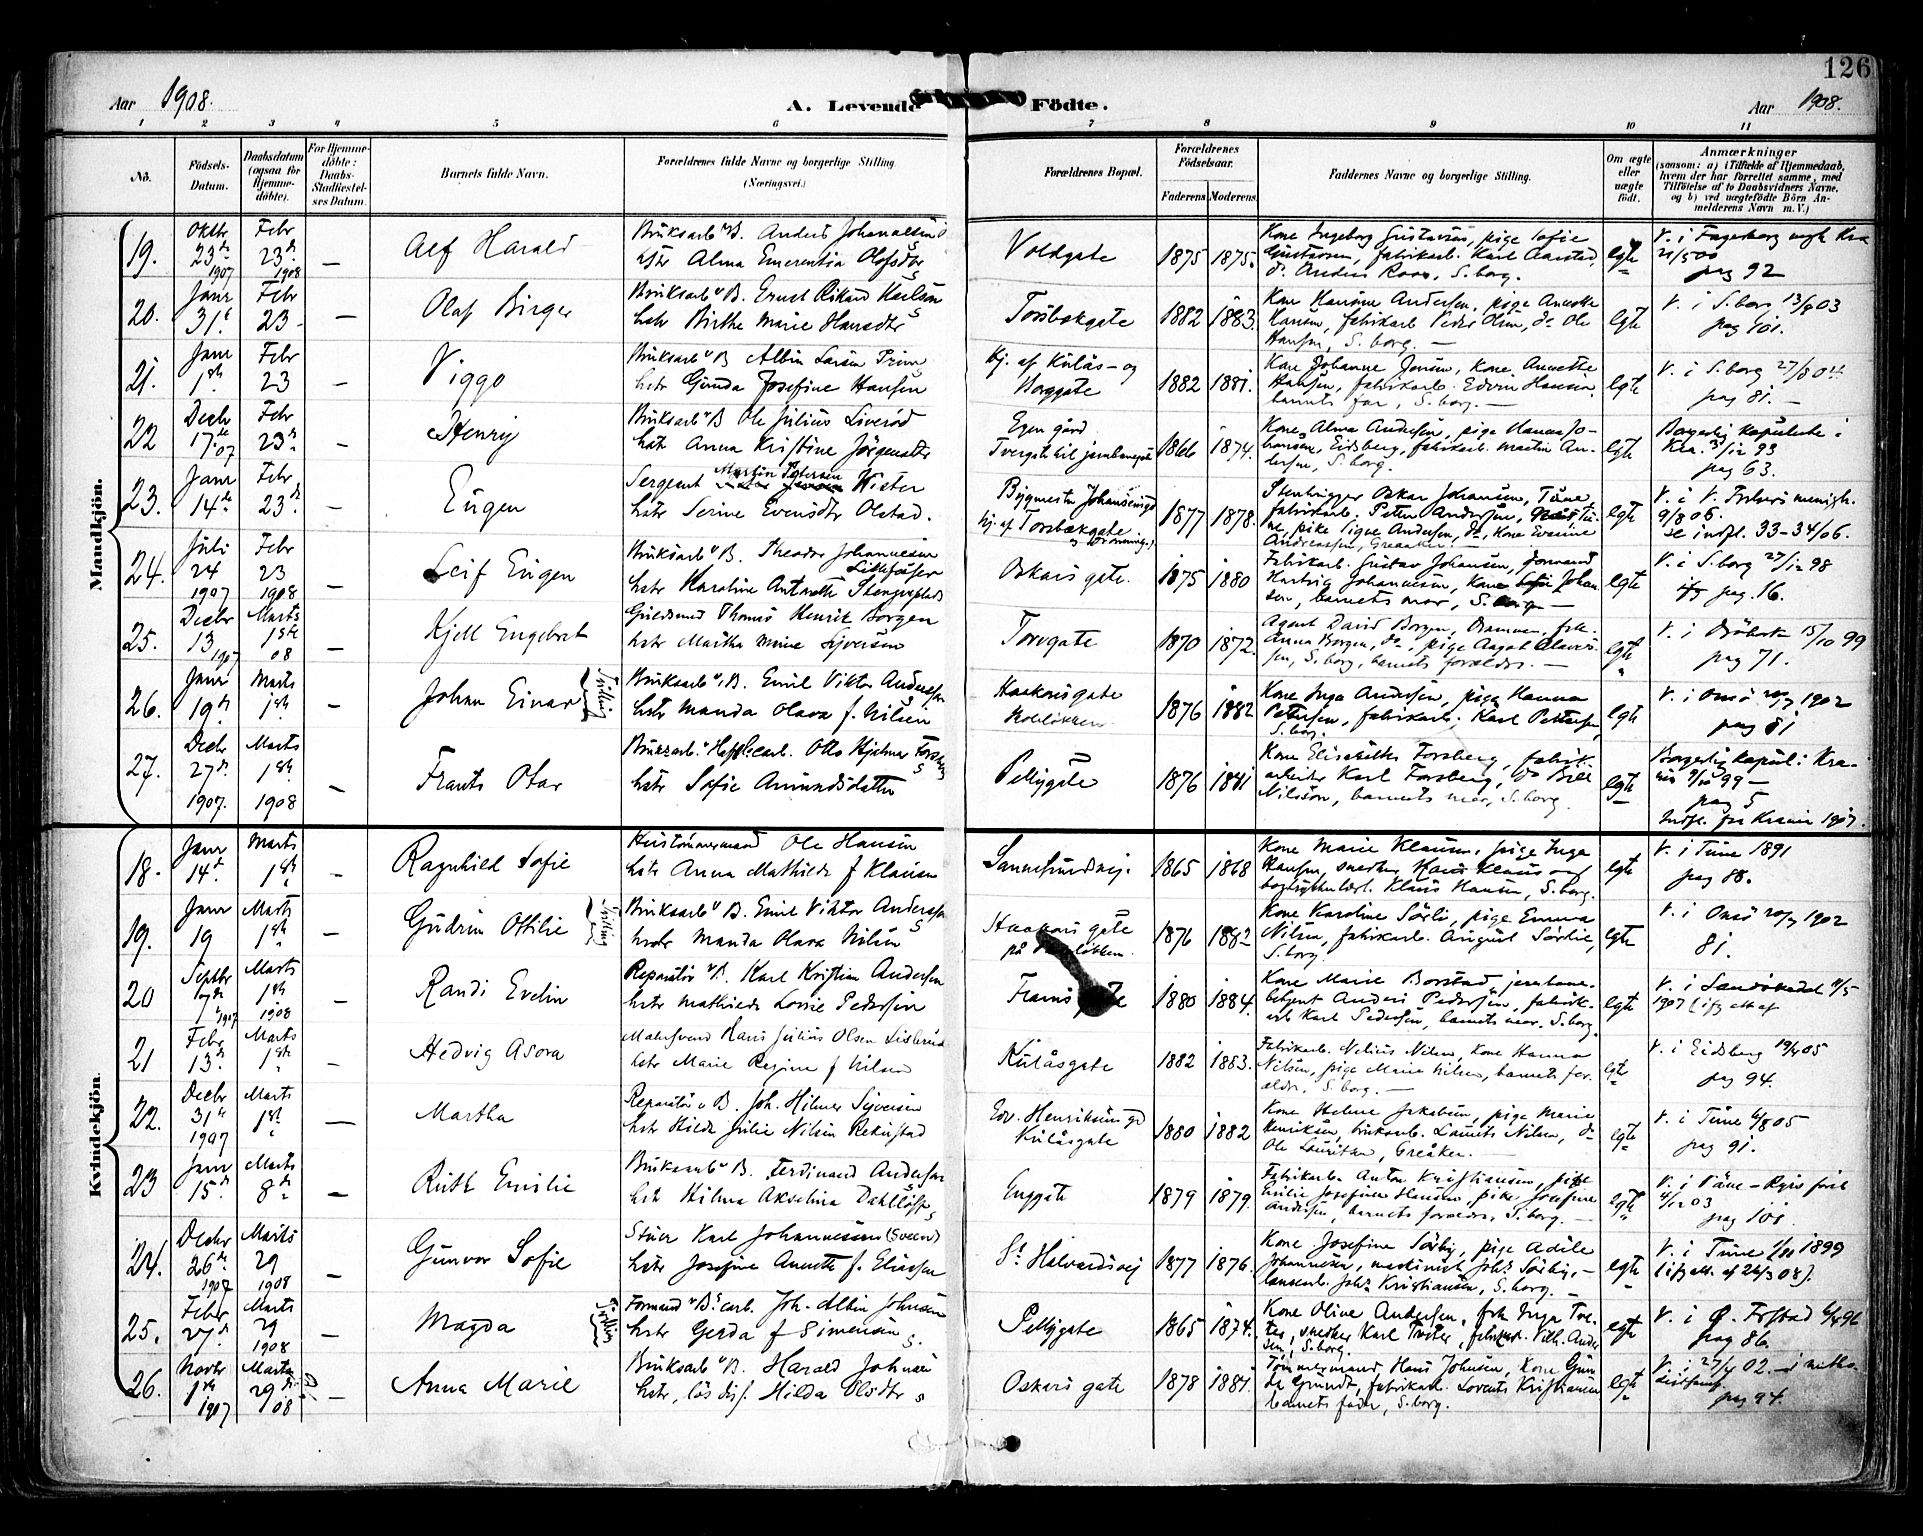 126
Aar 1908.
A. Levende Födte.
Aar 1908.
1 2 3 4 5 6 7 8 9 10 11
No.
Födsels-
Datum.
Daabsdatum
(ogsaa for
Hjemme-
döbte).
For Hjemme-
döbte:
Daabs-
Stadfæstel-
ses Datum.
Barnets fulde Navn.
Forældrenes fulde Navne og borgerlige Stilling
(Næringsvei.)
Forældrenes Bopæl.
Forældrenes
Födselsaar.
Faderens Moderens
Faddernes Navne og borgerlige Stilling.
Om ægte
eller
uægte
födt.
Anmærkninger
(saasom: a) i Tilfælde af Hjemmedaab,
hvem der har forrettet samme, med
Tilföielse af to Daabsvidners Navne,
og b) ved uægtefödte Börn An-
melderens Navn m. V.)
Mandkjön.
19. Oktbr 23de 1907 Febr 23de 1908 — Alf Harald
Bruksarb. v. B. Anders Johannesen
hstr Alma Emerentia Olofsdtr
Voldgate 1875 1875.
Kone Ingeborg Gustavsen, pige Sofie
Gustavsen, fabrikarb. Karl Aarstad,
do Anders Roos, S.borg.
egte
V. i Fagerborg mgh Kra
pag 92
20. Janr 31te Febr 23 — Olaf Birger
Bruksarb. v. B. Ernst Rikard Karlsen
hstr Birthe Marie Hansdtr
Torsbækgate 1882 1883.
Kone Hansine Andersen, pige Annette
Hansen, fabrikarb Peder Olsen, do Ole
Hansen, S.borg. —
egte
V. i S.borg 13/9 03
pag 101.
21. Janr 1ste Febr 23 — Viggo
Bruksarb. v. B. Albin Larsen
hstr Gunda Josefine Hansen
Hj. af Kulås- og
Borggate
1882 1881.
Kone Johanne Jensen, Kone Annette
Hansen, fabrikarb. Edvin Hansen
barnets far, S.borg. —
egte
V. i S.borg
pag 81. —
22 Decbr 17de 07 Febr 23de — Henry
Bruksarb. v. B Ole Julius Liverød
hstr Anna Kristine Jörgensdtr
Egen gård
Tvergate til jernbanegate
1866 1874.
Kone Alma Andersen, pige Hanna Jo-
hansen, Eidsberg, fabrikarb. Martin An-
dersen, S.borg.
egte
Borgerlig kopulerte i
Kra. 31/12 93
pag 63.
23. Janr 14de Febr 23de — Eugen
Sergeant Martin Petersen Wister
hstr Serine Evensdtr Olstad.
Bygmester Johansensgd
hj. af Torsbækgate
1877 1878.
Stenhugger Oskar Johansen, Tune,
fabrikarb. Peter Andersen, Tu-
ne, pike Signe Andersen, do, Kone Evenine
Andreassen, Greaaker. —
egte
9/8 06.
se indfl. 33-34/06.
24. Juli 24 1907 Febr 23 1908 — Leif Eugen
Bruksarb. v. B. Theodor Johannesen
Lillefosser
hstr Karoline Antonette
Oskars gate. 1875 1880
Fabrikarb. Gustav Johansen, formand
Hartvig Johannesen, Kone Johan-
sen, barnets mor, S.borg —
egte
V. i S.borg 27/12 98
pag. 16.
25. Decbr 13 1907 Marts 1ste 08 — Kjell Engebret
Guldsmed Thomas Henrik Borgen
hstr Martha Marie Syversen
Torvgate 1870 1872.
Agent David Borgen, Drammen, frk.
Anna Borgen, do, pige Aagot
sen, S.borg, barnets forældre. —
egte
V. i Dröbak 15/10 99
pag 71.
26. Janr 19de Marts 1ste — Johan Einar
Tvilling
Bruksarb. v. B. Emil Viktor Anderssen
hstr Manda Olava f. Nilsen
Haakonsgate
1876 1882
Kone Inga Andersen, pige Hanna
Pettersen, fabrikarb. Karl Pettersen
S.borg.
egte
V. i Onsö 20/7 1902
pag 81
27. Decbr 27de 1907. Marts 1ste 1908 — Frants Otar
Otto Hjalmar Forsberg
hstr Sofie Amundsdatter
Pellygate 1876
Kone Elisabeth Forsberg, fabrik-
arbeider Karl Forsberg, do
Nilsson, barnets mor, S.borg.
egte
Borgerlig kopul. i Kra-
pag 5
Indfl. fra Krania 1907.
Kvindekjön.
18. Janr 14de Marts 1ste — Ragnhild Sofie
Ole Hansen
hstr Anna Mathilde f Klausen
Sannesundvej. 1865 1868
Kone Marie Klausen, pige Inga
Hansen, snedker
Klaus Hansen, S.borg.
egte
V. i Tune 1891
pag 88.
19. Janr 19 Marts 1ste Gudrun Ottilie
Tvilling
Bruksarb. v. B. Emil Viktor Anderssen
hstr Manda Olava Nilsen
Haakons gate
1876 1882
Kone Karoline Sörli, pige Emma
Nilsen, fabrikarb. August Sörlie,
S.borg
egte
V. i Onsö 20/7 1902
81.
20 Septbr 17de 1907 Marts 1ste 1908 — Randi Evelin
Reparatör v. B. Karl Kristian Andersen
hstr Mathilde Lovise Pedersen
1880 1884.
Kone Marie Borstad, jernbane-
betjent Anders Pedersen, fabrik-
arb Karl Pedersen, barnets mor. S.borg
egte
V. i Sandökedal 9/5
1907
21 Febr 13de Marts 1ste — Hedvig Asora
Malersvend Hans Julius Olsen
hstr Marie Regine f Nilsen
Kulåsgate 1882 1883.
Fabrikarb. Nelius Nilsen, Kone Hanna
Nilsen, pige Marie Nilsen, barnets for-
ældre, S.borg. —
egte
V. i Eidsberg 05
pag 94.
22. Decbr 31te 1907 Marts 1ste — Martha
Reparatör v. B. Joh. Hilmer Syversen
hstr Hilda Julie Nilsen Rekustad
Edv. Henriksens gd
Kulåsgate
1880 1882
Kone Helene Jakobsen, pige Marie
Henriksen, bruksarb. Laurits Nilsen, do
Ole Lauritsen, Greåker. —
egte
V. i Tune 6/8 05
pag 91.
23 Janr 15de Marts 8de — Ruth Emilie
Bruksarb. v. B. Ferdinand Andersen
hstr Hilma Akselina
Enggate 1879 1879.
Fabrikarb. Anton Kristiansen, pige
Emilie Josefine Hansen, pike Josefine
Andersen, barnets forældre, S.borg. —
egte
4/12 03
pag 101.
24. Decbr 26de 1907 Marts 29 1908 — Gunvor Sofie
Stuer Karl Johannessen (Sveen)
hstr Josefine Annette f. Eliassen
St Halvardsvej 1877 1876.
Kone Josefine Sörby, pige Adèle
Johannesen, maskinist Johs Sörby, —
Johs Kristiansen, S.borg. —
egte
V. i Tune 1899
(ifg att. af 26/3 08).
25. Febr 27de Marts 29 1908 — Magda
Tvilling
Formand v. B. carb. Joh. Albin Johnsen
hstr Gerda f Simensen
Pellygate 1865 1874.
Kone Olive Andersen, frk Inga Tve-
ter, snedker Karl Tveter, fabrikarb. Vilh. Ander-
sen, S.borg.
egte
V. i Ø. Fr.stad 6/4 96
pag 86.
26. Novbr 1ste 1907 Marts 29de 08 — Anna Marie
Bruksarb. v. B. Harald Johnsen
hstr, Hilda Olsdtr
Oskars gate 1878 1881.
Tömmermand Hans Johnsen, Kone Gun-
da Grundt, fabrikarb. Lorents Kristiansen
barnets fader, S.borg.
egte
pag 94.